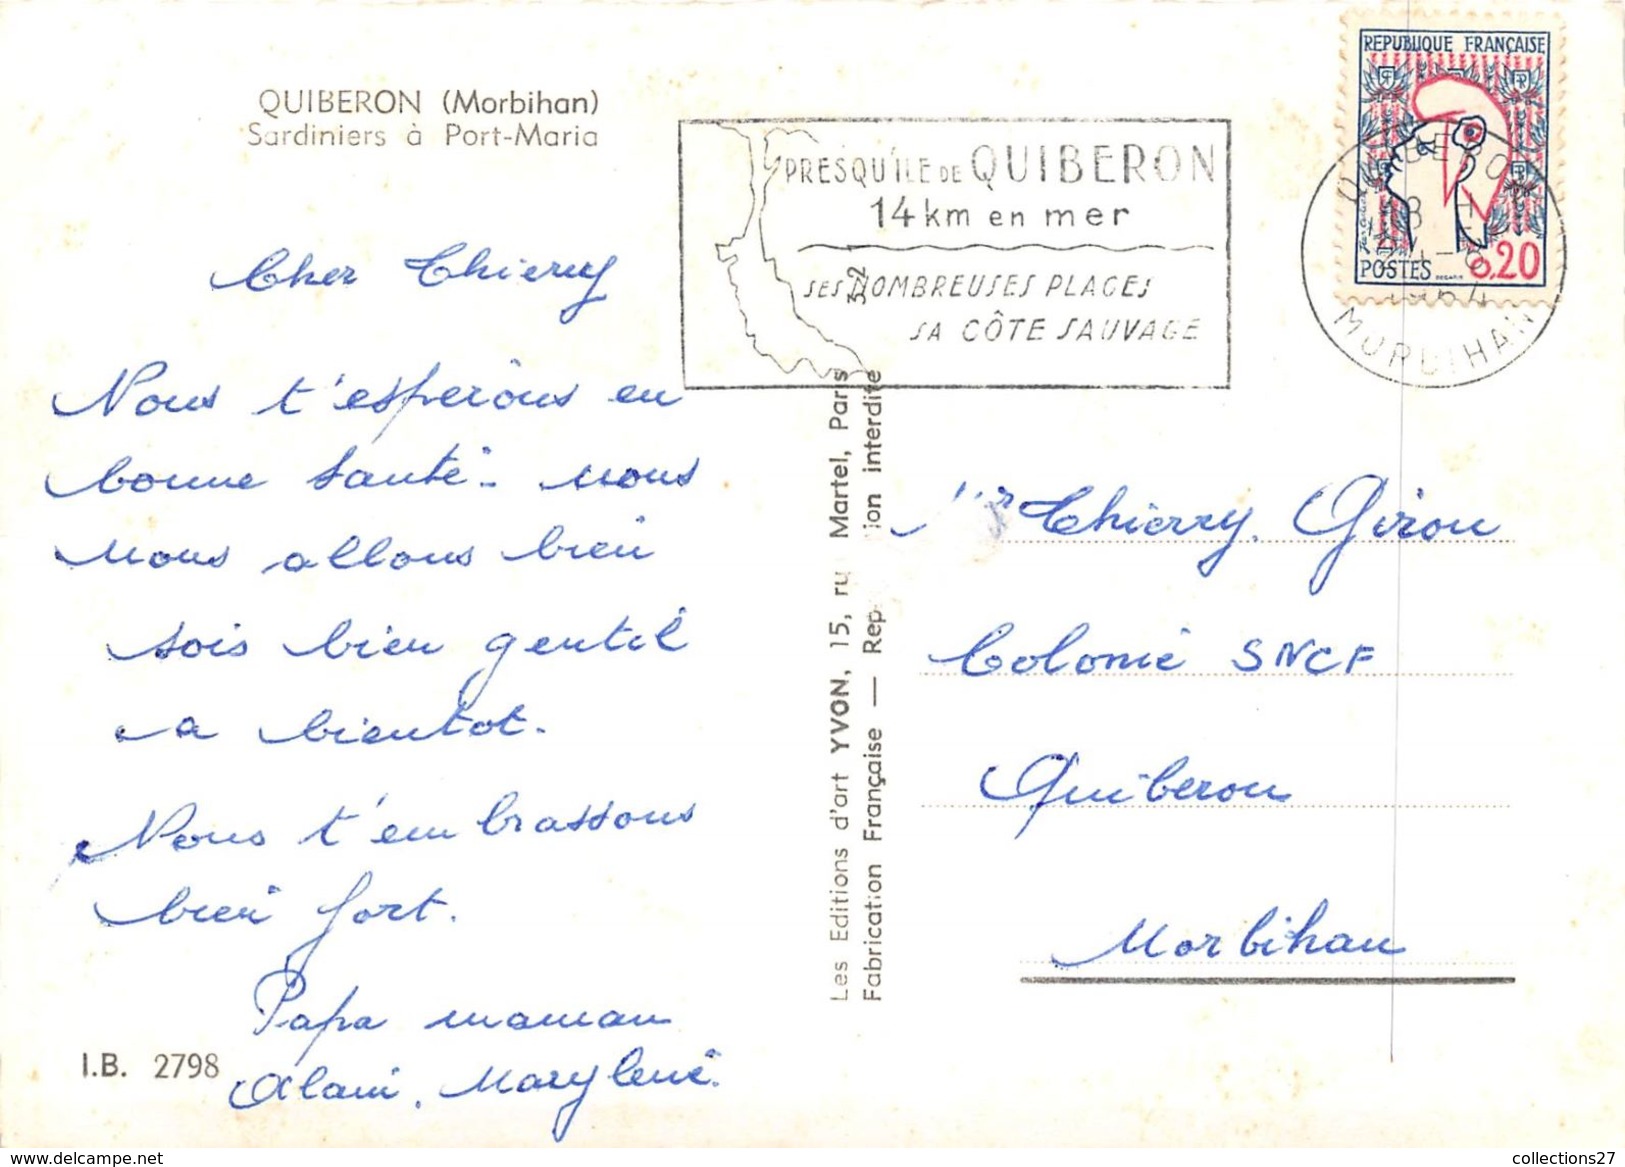 QUIBERON (Morbihan)
Sardiniers à Port-Maria
Cher Thierry
Nous t'espérons en
bonne santé - nous
nous allons bien
sois bien gentil
a bientot.
Nous t'embrassons
bien fort.
Papa maman
Alain, Marylène.
I.B. 2798
Les Editions d'art YVON, 15, ru Martel, Paris
Fabrication Française — Rep ion interdite
PRESQU'ÎLE DE QUIBERON
14 km en mer
SES NOMBREUSES PLAGES
SA CÔTE SAUVAGE
322
REPUBLIQUE FRANÇAISE
POSTES 0,20
QUIBERON
18 H
1964
MORBIHAN
Mr Thierry Giron
Colonie SNCF
Quiberon
Morbihan
collections-delcampe.net
collections27